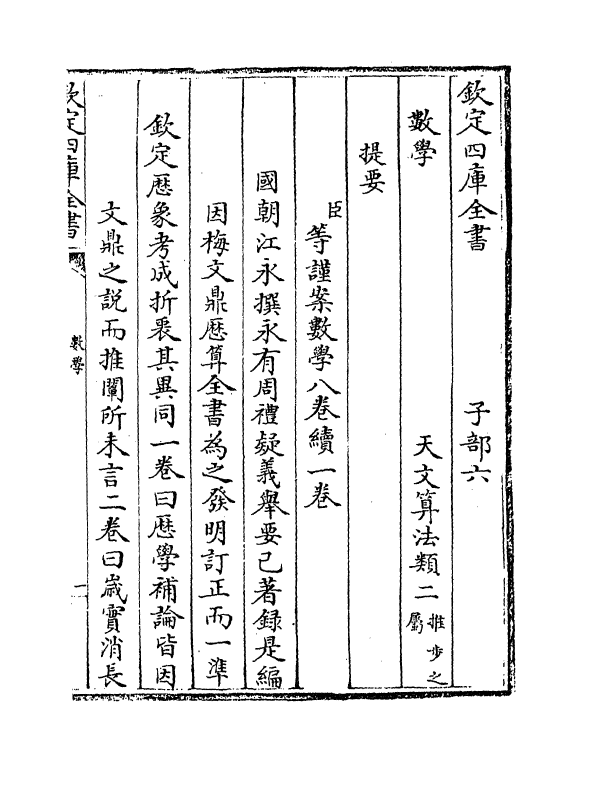 欽定四庫全書　　　　子部六
數學　　　　　　天文算法類二推步之屬
提要
臣等謹案數學八卷續一卷
國朝江永撰永有周禮疑義舉要已著録是編
因梅文鼎厯算全書為之發明訂正而一準
欽定厯象考成折衷其異同一卷曰厯學補論皆因
文鼎之説而推闡所未言二卷曰嵗實消長
欽定四庫全書　數學　一